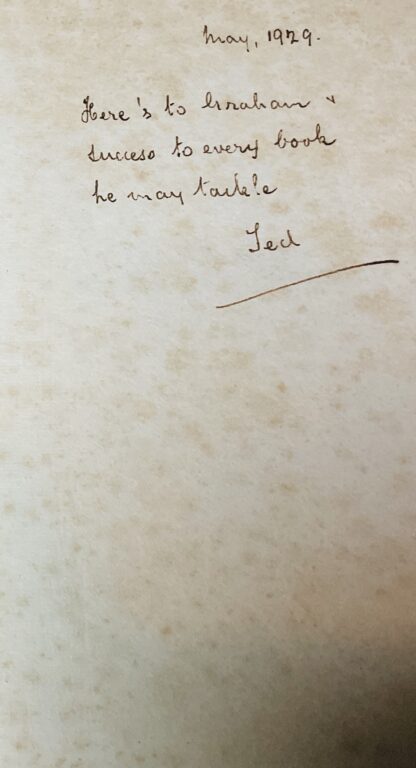 May, 1929.
Here's to Graham &
success to every book
he may tackle
Ted